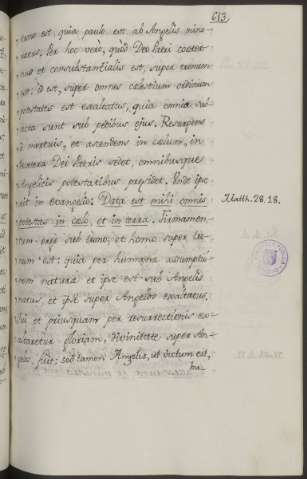 613
tum est, quia paulo est ab Angelis mino-
ratus. Per hoc verò, quòd Deo Patri coeter-
nus et consubstantialis est, super
est: id est, super omnes coelestium ordinum
potestates est exaltatus, quia omnia sub-
jecta sunt sub pedibus ejus. Resurgens
à mortuis, et ascendens in coelum, in
dextera Dei Patris sedet, omnibusque
Angelicis potestatibus præsidet. Unde ipse
ait in evangelio: Data est mihi omnis
potestas in coelo, et in terra.
Matth. 28. 18.
ergo sub homo, et homo super
est: quia per humanam assumptam
naturam et ipse est sub Angelis
natus, et ipse super Angelos exaltatus.
Qui et priusquam per resurrectionis ex-
altaretur gloriam, Divinitate super An-
gelos fuit: sed tamen Angelis, ut dictum est,
mi-